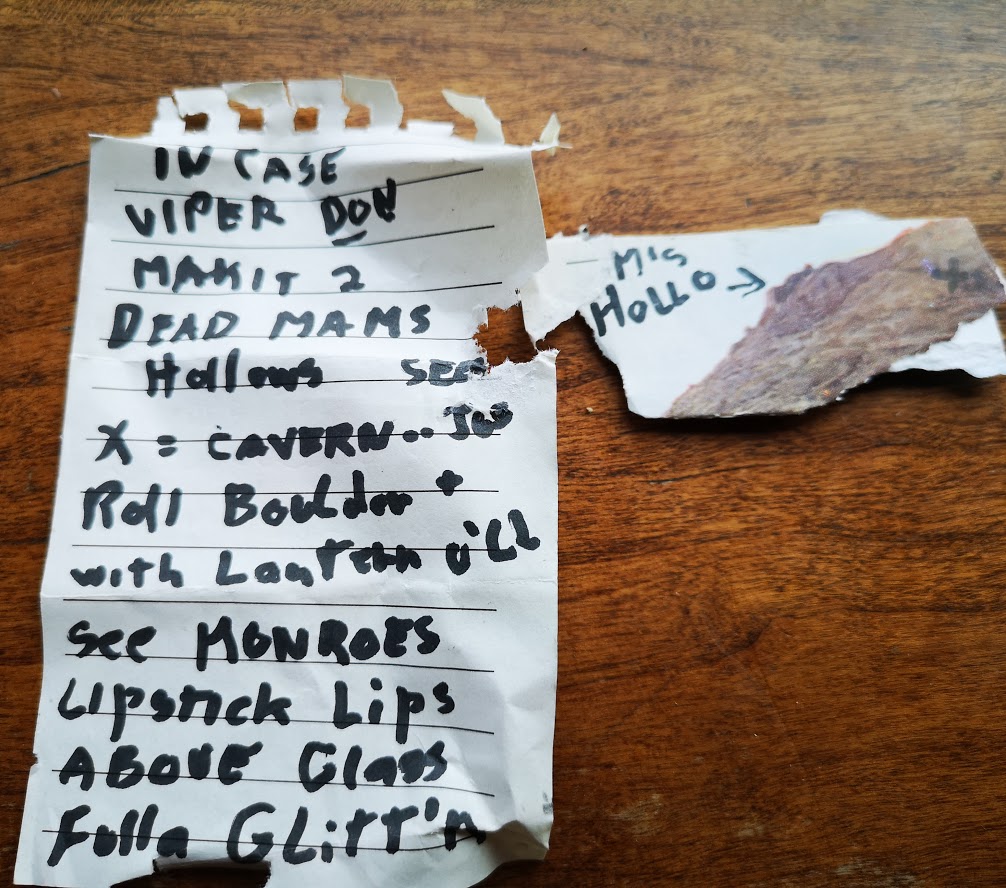 IN CASE
VIPER DON
MAKIT 2
DEAD MAMS
Hollows SEE
X = CAVERN.. JUS
Roll Boulder +
with Lantern U'LL
see MONROES
Lipstick Lips
ABOVE Glass
Fulla GLITT'N
HOLLO →
X